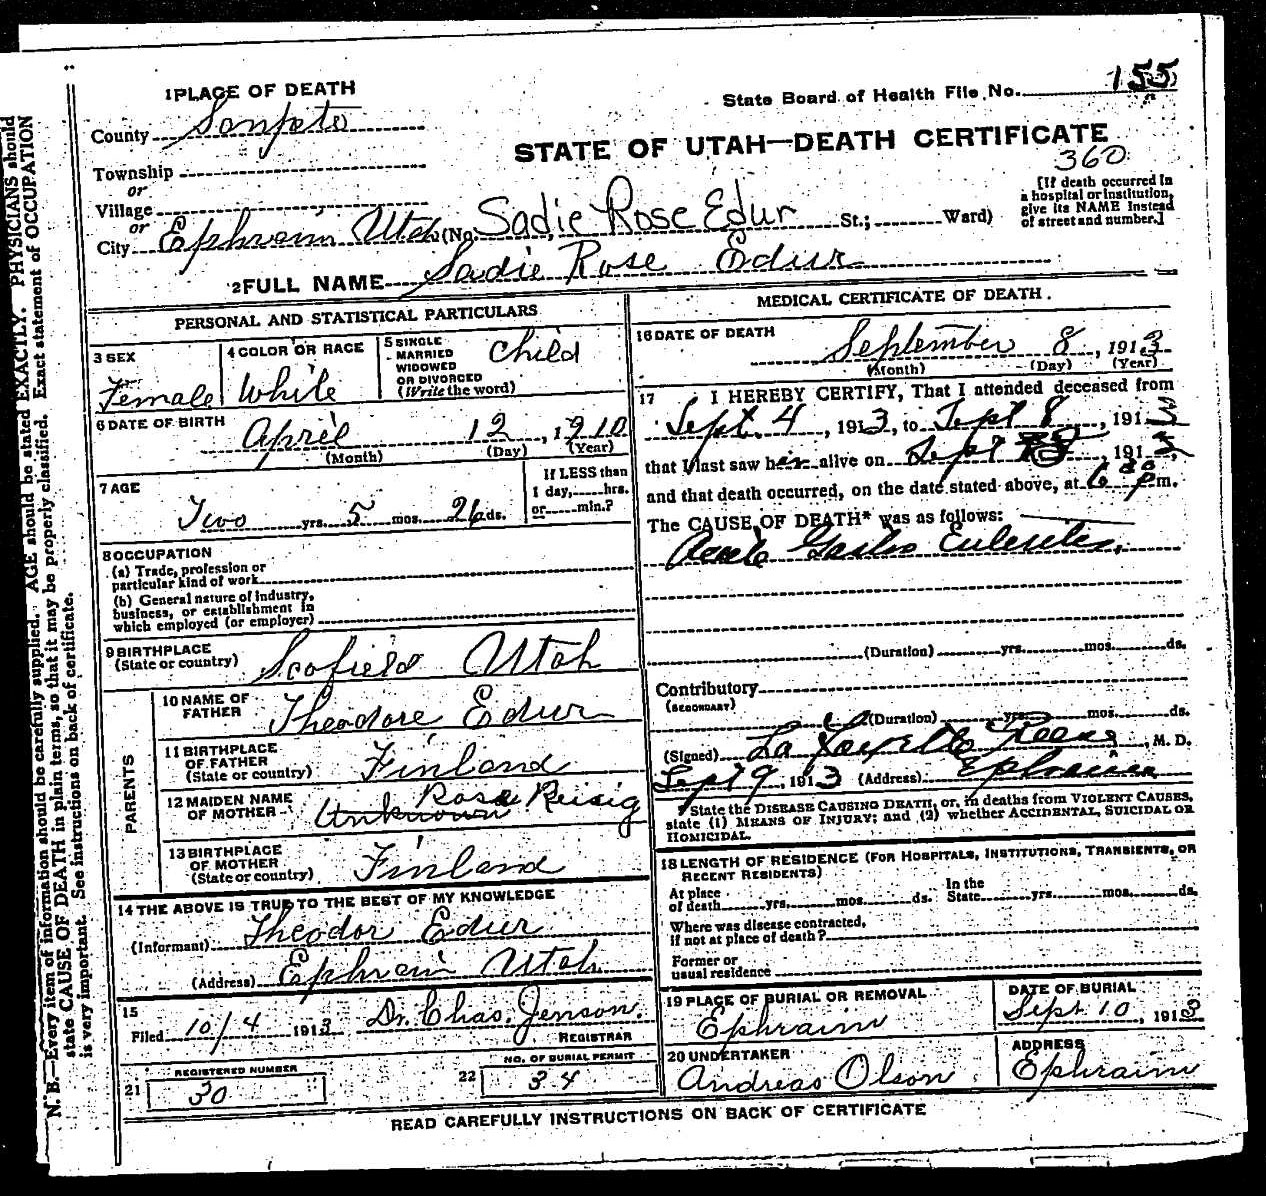 1 PLACE OF DEATH
State Board of Health File No. 155
County Sanpete
STATE OF UTAH—DEATH CERTIFICATE
360
Township
or
Village
or
City Ephraim Utah (No. Sadie Rose Edur St.; Ward)
[If death occurred in
a hospital or institution,
give its NAME instead
of street and number.]
2 FULL NAME Sadie Rose Edur
PERSONAL AND STATISTICAL PARTICULARS
3 SEX
Female
4 COLOR OR RACE
White
5 SINGLE
MARRIED
WIDOWED
OR DIVORCED
(Write the word)
Child
6 DATE OF BIRTH
April 12, 1910
(Month) (Day) (Year)
7 AGE
Two yrs. 5 mos. 26 ds.
If LESS than
1 day, hrs.
or min.?
8 OCCUPATION
(a) Trade, profession or
particular kind of work
(b) General nature of industry,
business, or establishment in
which employed (or employer)
9 BIRTHPLACE
(State or country) Scofield Utah
PARENTS
10 NAME OF
FATHER Theodore Edur
11 BIRTHPLACE
OF FATHER
(State or country) Finland
12 MAIDEN NAME
OF MOTHER Unknown Rosa Reisig
13 BIRTHPLACE
OF MOTHER
(State or country) Finland
14 THE ABOVE IS TRUE TO THE BEST OF MY KNOWLEDGE
(Informant) Theodor Edur
(Address) Ephraim Utah
15
Filed 10/4 1913 Dr. Chas. Jenson.
REGISTRAR
REGISTERED NUMBER
21 30
NO. OF BURIAL PERMIT
22 34
MEDICAL CERTIFICATE OF DEATH.
16 DATE OF DEATH
September 8, 1913
(Month) (Day) (Year)
17 I HEREBY CERTIFY, That I attended deceased from
Sept. 4, 1913, to Sept 8, 1913
that I last saw her alive on Sept 8, 1913,
and that death occurred, on the date stated above, at 6 30 p m.
The CAUSE OF DEATH* was as follows:
Acute Gastro Enteritis.
(Duration) yrs. mos. ds.
Contributory
(SECONDARY)
(Duration) yrs. mos. ds.
(Signed) La Fayette Rees, M. D.
Sept 9, 1913 (Address) Ephraim
State the DISEASE CAUSING DEATH, or, in deaths from VIOLENT CAUSES,
state (1) MEANS OF INJURY; and (2) whether ACCIDENTAL, SUICIDAL OR
HOMICIDAL.
18 LENGTH OF RESIDENCE (FOR HOSPITALS, INSTITUTIONS, TRANSIENTS, OR
RECENT RESIDENTS)
At place
of death yrs. mos. ds.
In the
State yrs. mos. ds.
Where was disease contracted,
if not at place of death?
Former or
usual residence
19 PLACE OF BURIAL OR REMOVAL
Ephraim
DATE OF BURIAL
Sept 10, 1913
20 UNDERTAKER
Andreas Olson
ADDRESS
Ephraim
READ CAREFULLY INSTRUCTIONS ON BACK OF CERTIFICATE
N. B.—Every item of information should be carefully supplied. AGE should be stated EXACTLY. PHYSICIANS should
state CAUSE OF DEATH in plain terms, so that it may be properly classified. Exact statement of OCCUPATION
is very important. See instructions on back of certificate.